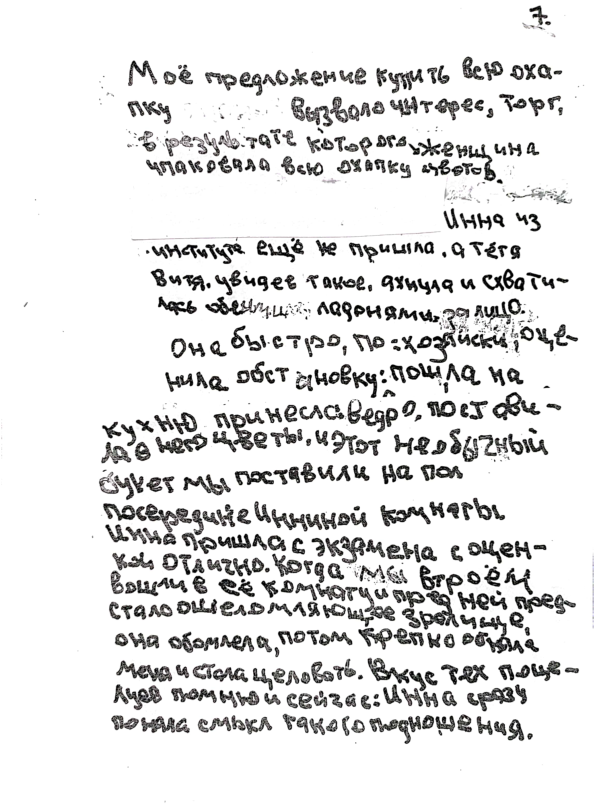 7.
Моё предложение купить всю оха-
пку вызвало интерес, торг,
в результате которого женщина
упаковала всю охапку цветов.
Инна из
института ещё не пришла, а тётя
Витя, увидев такое, ахнула и схвати-
лась обеими ладонями за лицо.
Она быстро, по-хозяйски, оце-
нила обстановку: пошла на
кухню принесла ведро, постави-
ла в него цветы, и этот необычный
букет мы поставили на пол
посередине Инниной комнаты
Инна пришла с экзамена с оцен-
кой отлично. Когда мы втроём
вошли в её комнату и пред ней пред-
стало ошеломляющее зрелище,
она обомлела, потом крепко обняла
меня и стала целовать. Вкус тех поце-
луев помню и сейчас: Инна сразу
поняла смысл такого подношения.